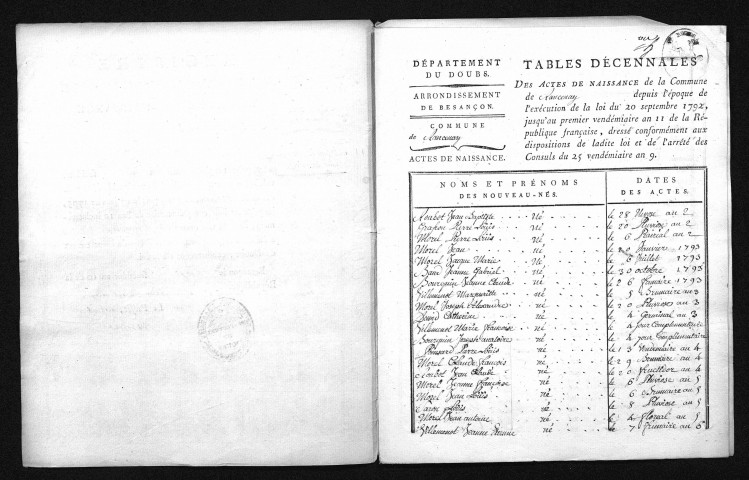 DÉPARTEMENT
DU DOUBS.
ARRONDISSEMENT
DE BESANÇON.
COMMUNE
de
ACTES DE NAISSANCE.
TABLES DÉCENNALES
DES ACTES DE NAISSANCE de la Commune
de depuis l'époque de
l'exécution de la loi du 20 septembre 1792,
jusqu'au premier vendémiaire an 11 de la Ré-
publique française, dressé conformément aux
dispositions de ladite loi et de l'arrêté des
Consuls du 25 vendémiaire an 9.
NOMS ET PRÉNOMS
DES NOUVEAU-NÉS.
DATES
DES ACTES.
Jean Baptiste né le 28 Nivose an 2
Pierre Louis né le 20 Pluviose an 2
Morel Pierre Louis né le 6 Prairial an 2
Morel Jean né Janvier 1793
Morel Jaque Marie né Juillet 1793
Jeanne Gabriel né le 30 octobre 1793
Bourquin Jeanne Claude né le 26 frimaire 1793
Villemenot Marguerite né le 8 Brumaire an 3
Morel Joseph Alexandre né le 20 Pluviose an 3
Catherine né le 4 Germinal an 3
Villemenot Marie françoise né le 4 Jour Complimentaire
Bourquin Joseph anatoire né le 4 jour Complimentaire
Ponsard Pierre Louis né le 13 Vendemiaire an 4
Morel Claude françois né le 29 Brumaire an 4
Jean Claude né le 20 fructidor an 4
Morel Jeanne françoise né le 6 Pluviose an 5
Morel Jean Louis né le 6 Brumaire an 5
Caron Louis né le 8 Pluviose an 5
Morel Jean antoine né le 4 floreal an 5
Villemenot Jeanne Etienne né le 7 frimaire an 6